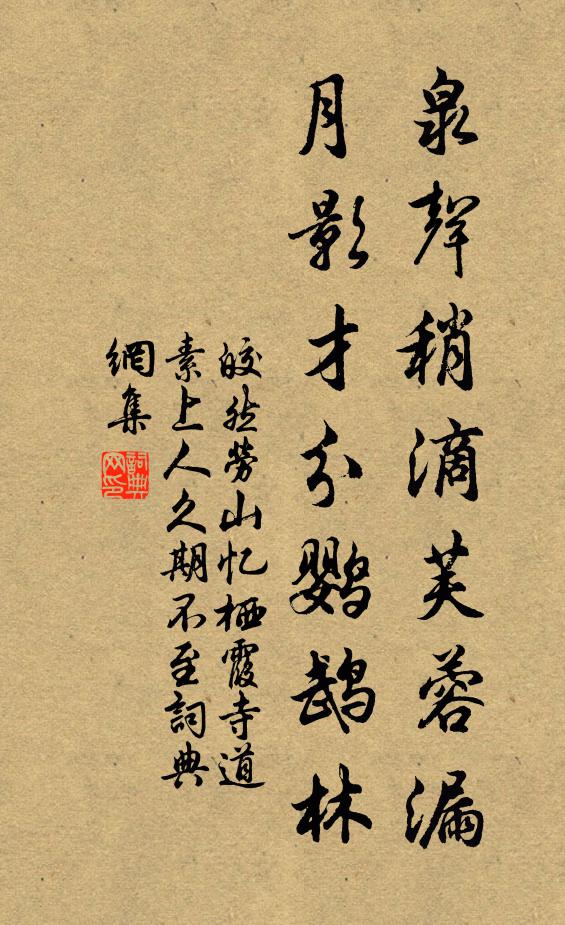 泉聲稍滴芙蓉漏
月影才分鹦鹉林
皎然勞山忆栖霞寺道
素上人久期不至詞典
網集
詞典
网印